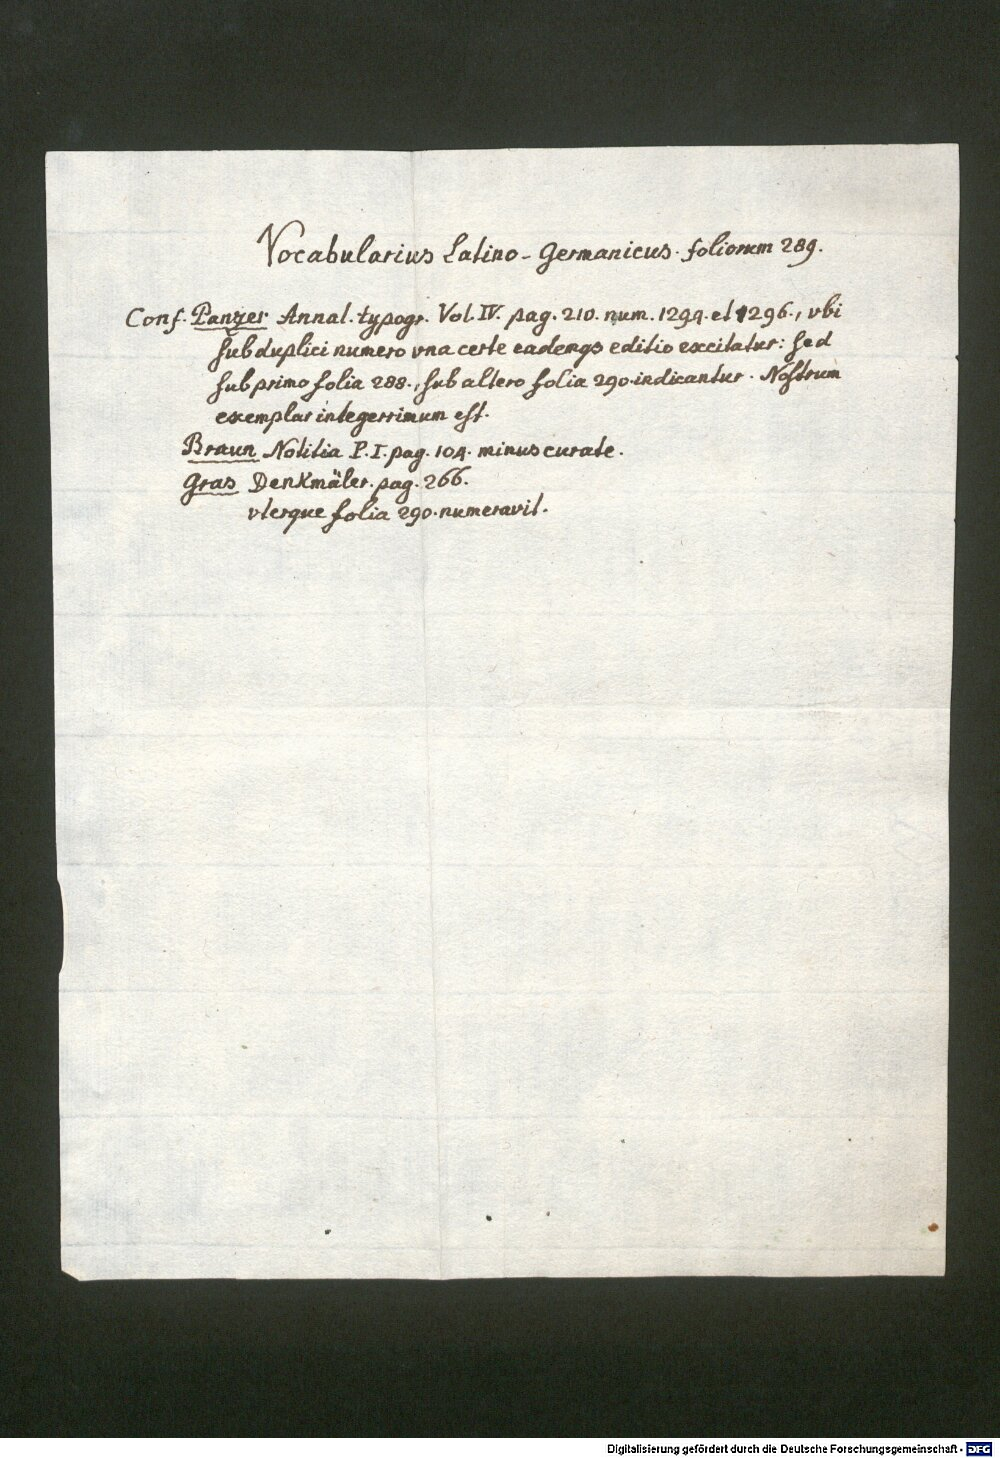 Vocabularius Latino-Germanicus. foliorum 289.
Conf. Panzer Annal. typogr. Vol. IV. pag. 210. num. 1294. et 1296., vbi
sub duplici numero vna certe eademqs editio excitatur: sed
sub primo folia 288., sub altero folia 290. indicantur. Nostrum
exemplar integerrimum est.
Braun Notitia P. I. pag. 104. minus curate.
Gras Denkmäler. pag. 266.
vterque folia 290. numeravit.
Digitalisierung gefördert durch die Deutsche Forschungsgemeinschaft - DFG